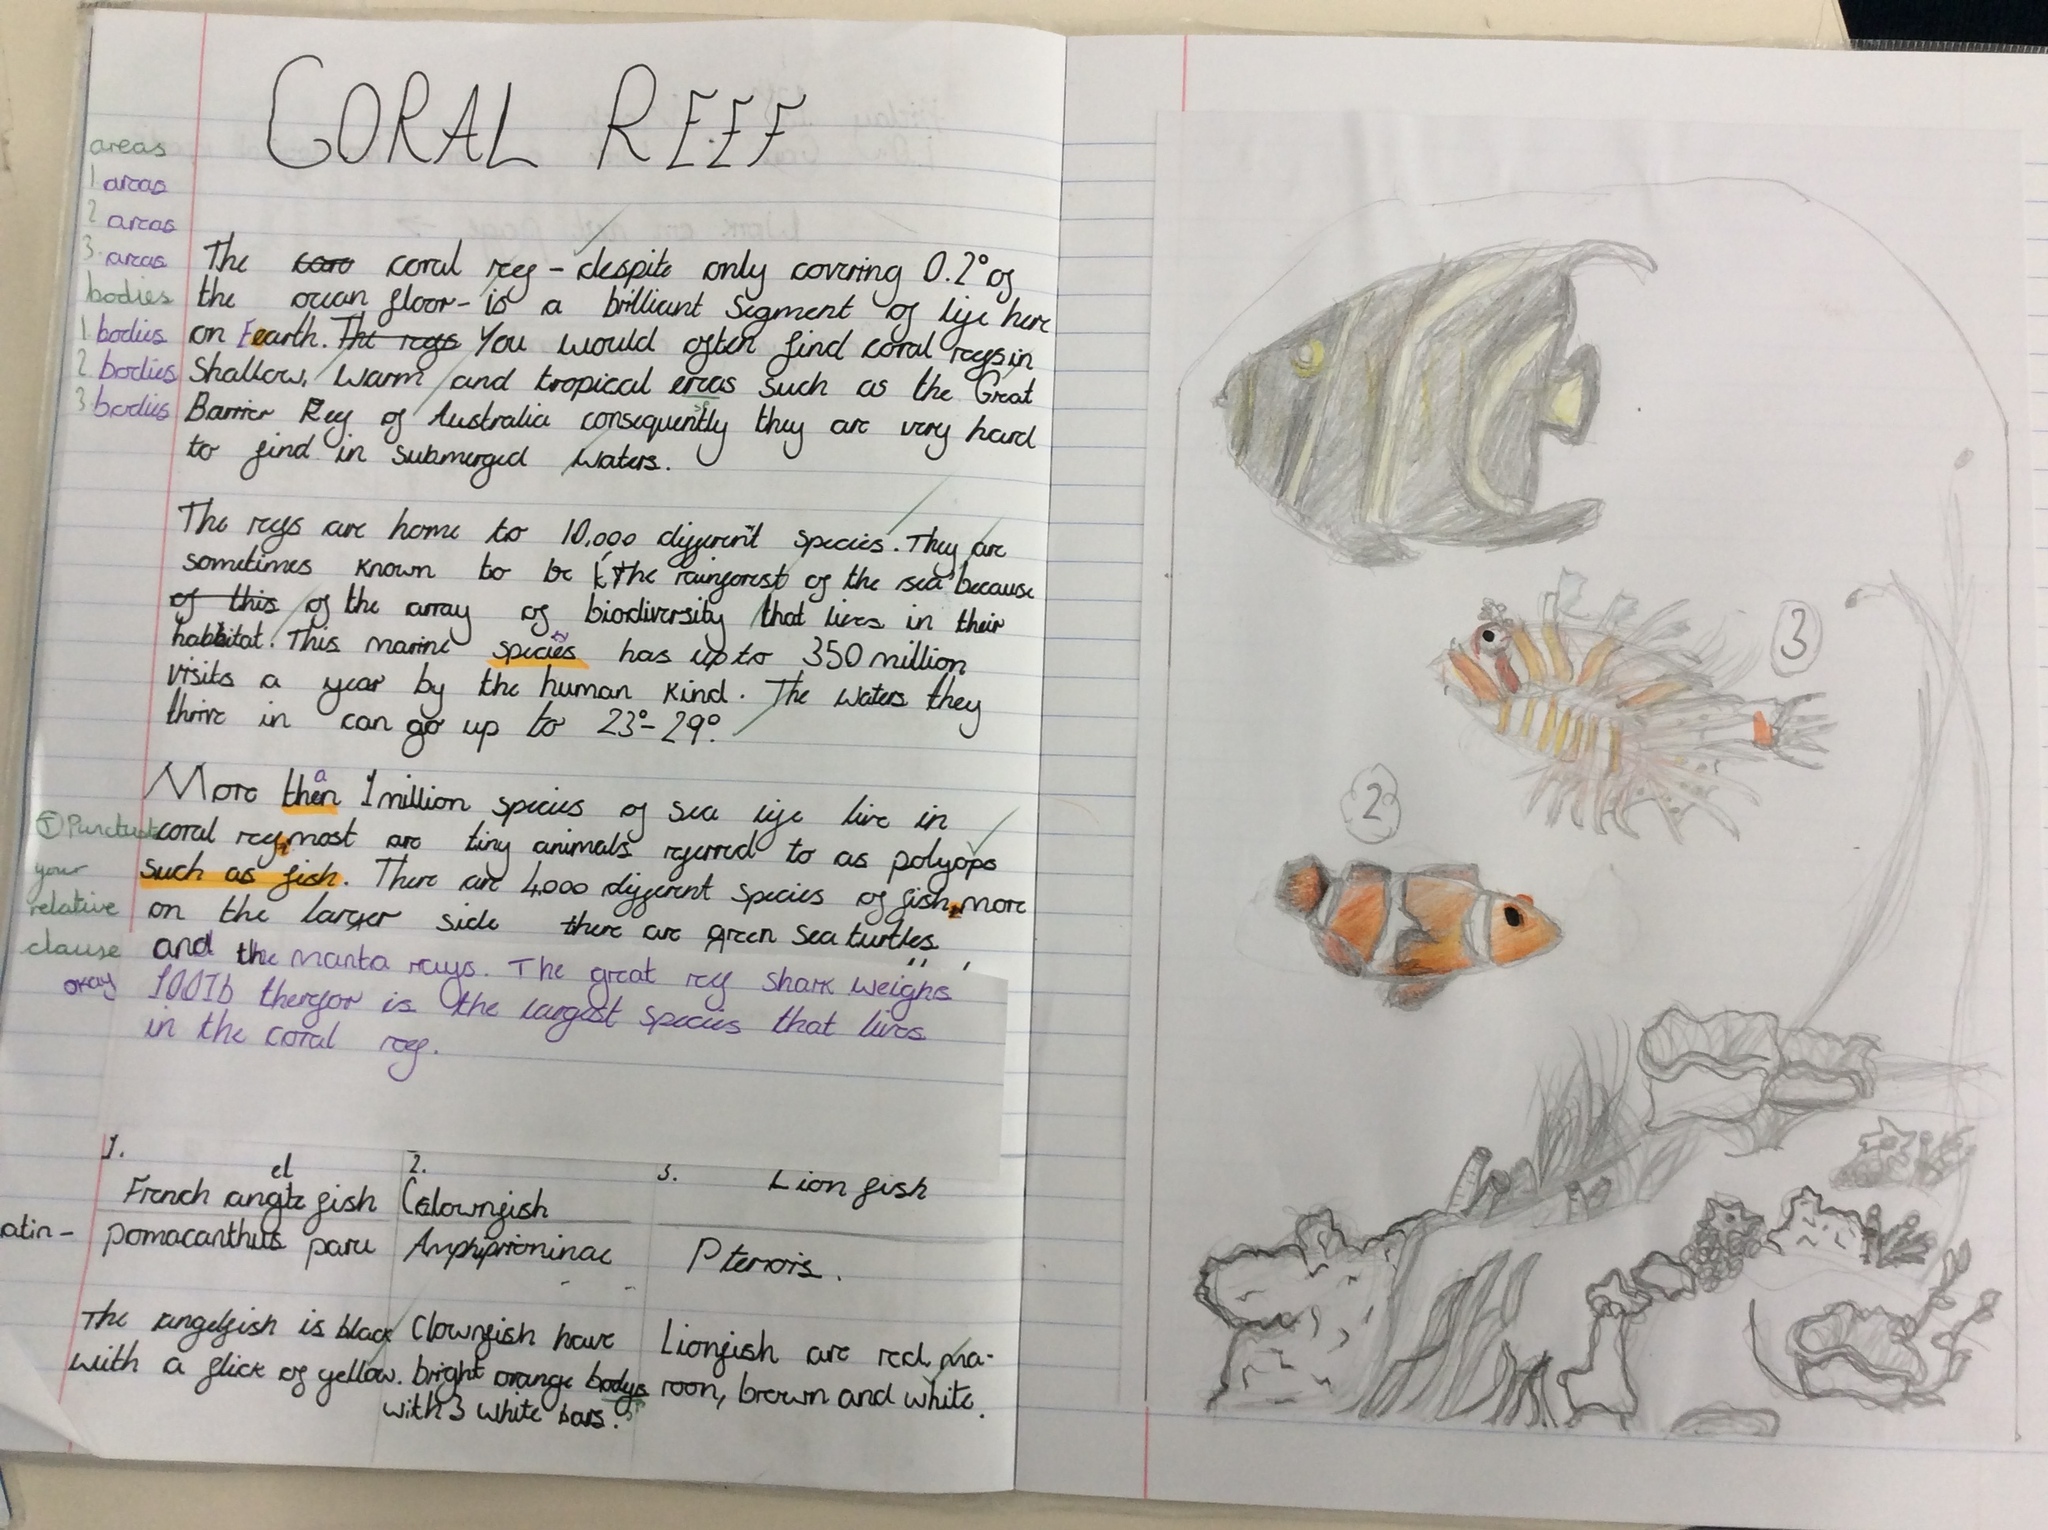 CORAL REEF
areas
1 areas
2 areas
3. areas
bodies
1 bodies
2 bodies
3. bodies
The caro coral reef - despite only covering 0.2° of
the ocean floor - is a brilliant segment of life here
on Eearth. The refs You would often find coral reefs in
Shallow, warm and tropical ereas such as the Great
sp
Barrier Reef of Australia consequently they are very hard
to find in submerged waters.
The reefs are home to 10,000 different species. They are
sometimes known to be 'The rainforest of the sea' because
of this of the array of biodiversity that lives in their
habbitat. This marine species has up to 350 million
visits a year by the human kind. The waters they
thrive in can go up to 23°- 29°.
a
More then 1 million species of sea life live in
coral reef, most are tiny animals referred to as polyops
such as fish. There are 4,000 different species of fish, more
on the larger side there are green sea turtles,
and the manta rays. The great reef shark weighs
100lb therfor is the largest species that lives
in the coral reef.
Punctuate
your
relative
clause
okay
1.
el
French angle fish
2.
Clownfish
3.
Lion fish
atin -
pomacanthus paru
Amphiprioninae
Pterois.
The angelfish is black
with a flick of yellow.
Clownfish have
bright orange bodys
sp
with 3 white bars.
Lionfish are red, ma-
roon, brown and white.
3
2